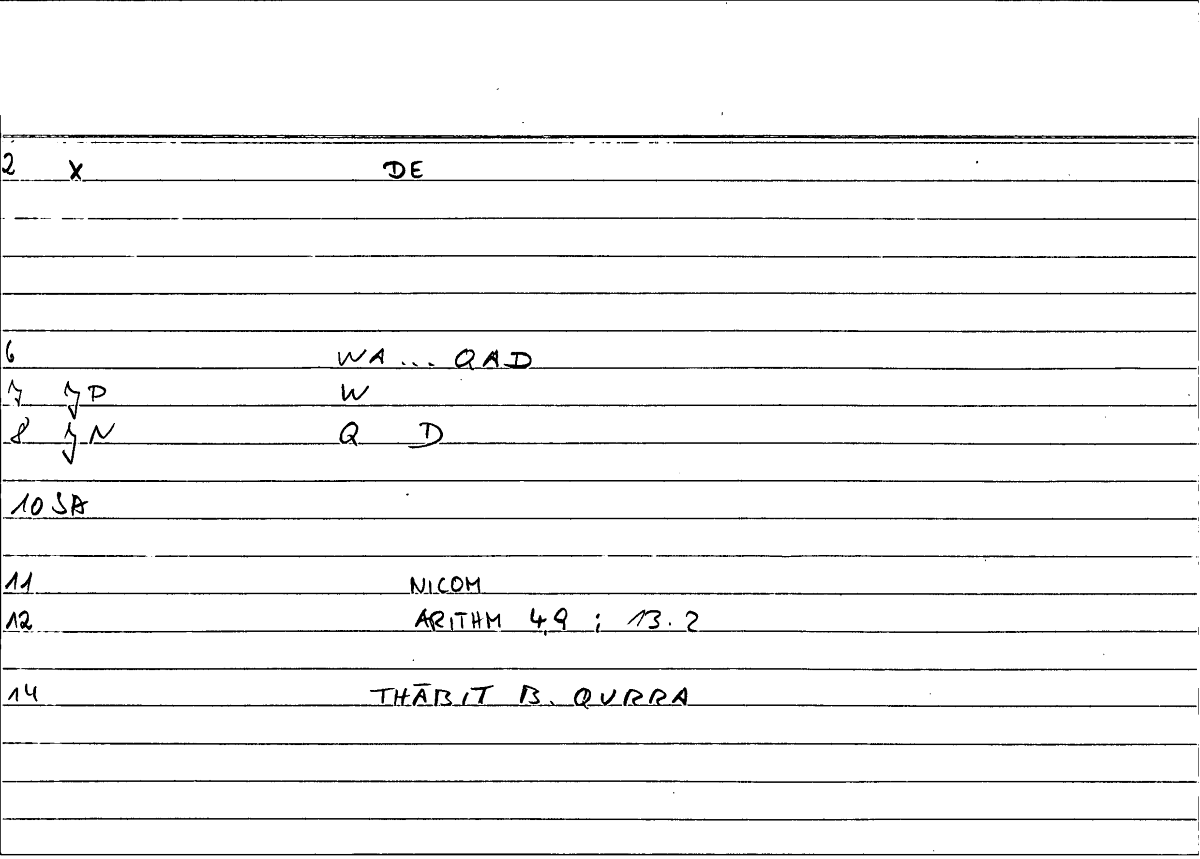 2 X DE
6 WA ... QAD
7 JP W
8 JN Q D
10 SA
11 NICOM
12 ARITHM 4,9 ; 13.2
14 THĀBIT B. QURRA